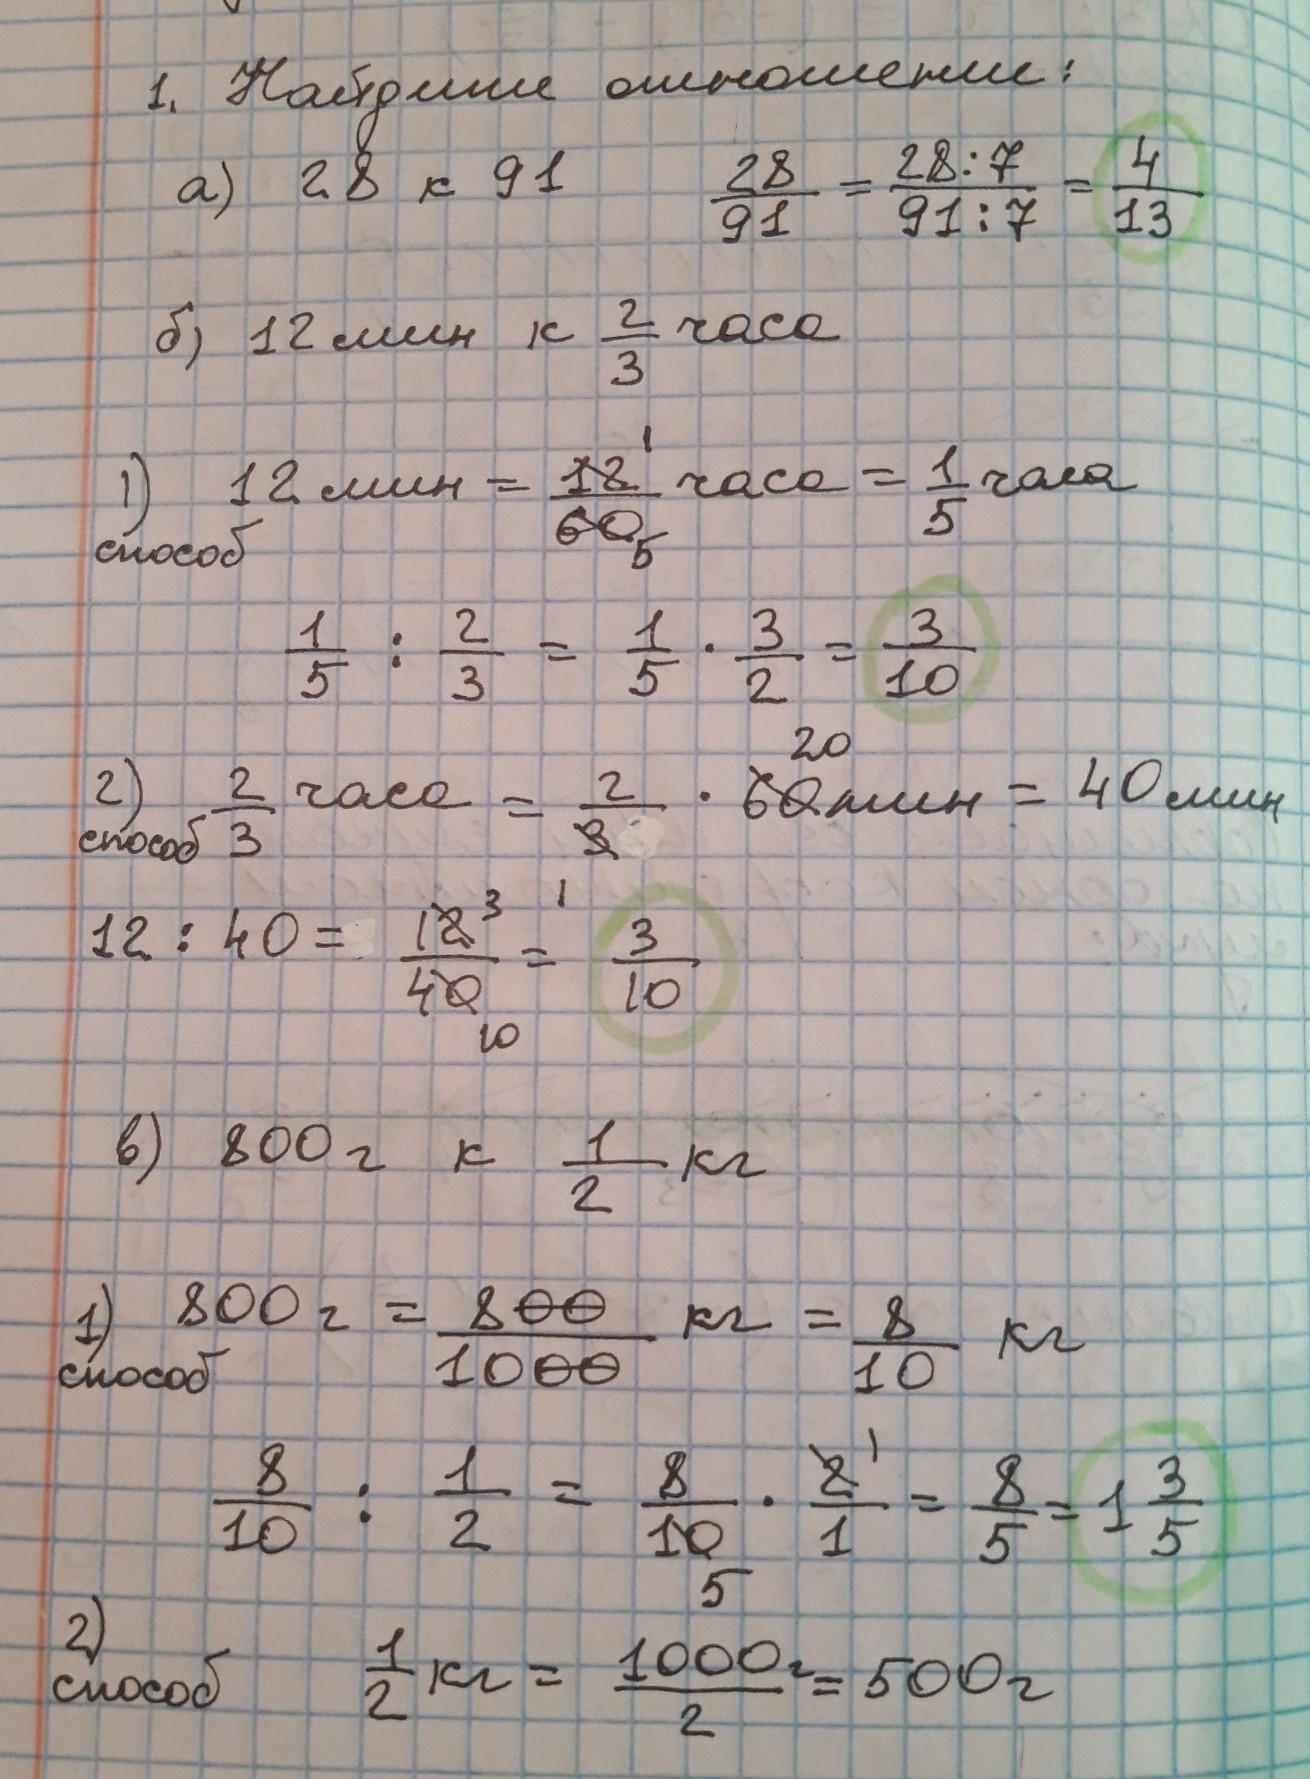 1. Найдите отношение:
а) 28 к 91 28/91 = 28:7/91:7 = 4/13
б) 12 мин к 2/3 часа
1) способ 12 мин = 12/60 часа = 1/5 часа
1
5
1/5 : 2/3 = 1/5 · 3/2 = 3/10
20
2) способ 2/3 часа = 2/3 · 60 мин = 40 мин
1
12 : 40 = 12/40 = 3/10
3
10
в) 800 г к 1/2 кг
1) способ 800 г = 800/1000 кг = 8/10 кг
8/10 : 1/2 = 8/10 · 2/1 = 8/5 = 1 3/5
1
5
2) способ 1/2 кг = 1000 г/2 = 500 г